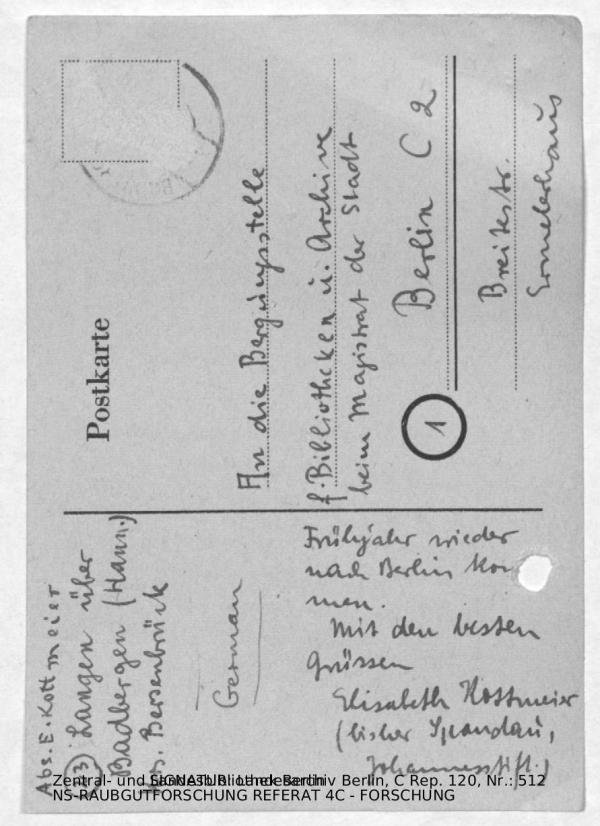 Postkarte
An die Bergungsstelle
f. Bibliotheken u. Archive
beim Magistrat der Stadt
Berlin C 2
1
Breitestr.
Ermelerhaus
Abs. E. Kottmeier
(23) Langen über
Badbergen (Hann.)
Krs. Bersenbrück
German
Frühjahr wieder
nach Berlin kom
men.
Mit den besten
Grüssen
Elisabeth Kottmeier
(bisher Spandau,
Johannesstift.)
SIGNATUR: Landesarchiv Berlin, C Rep. 120, Nr.: 512
Zentral- und Landesbibliothek Berlin
NS-RAUBGUTFORSCHUNG REFERAT 4C - FORSCHUNG